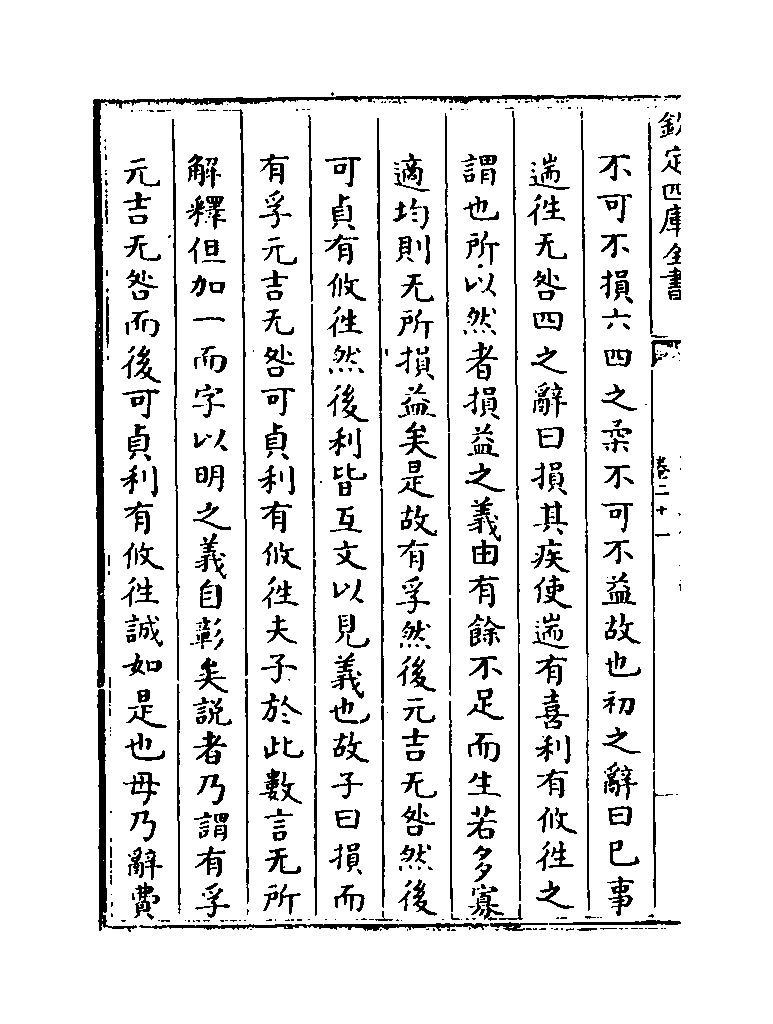 欽定四庫全書
卷二十一
不可不損六四之柔不可不益故也初之辭曰已事
遄徃无咎四之辭曰損其疾使遄有喜利有攸徃之
謂也所以然者損益之義由有餘不足而生若多寡
適均則无所損益矣是故有孚然後元吉无咎然後
可貞有攸徃然後利皆互文以見義也故子曰損而
有孚元吉无咎可貞利有攸徃夫子於此數言无所
解釋但加一而字以明之義自彰矣説者乃謂有孚
元吉无咎而後可貞利有攸徃誠如是也毋乃辭費